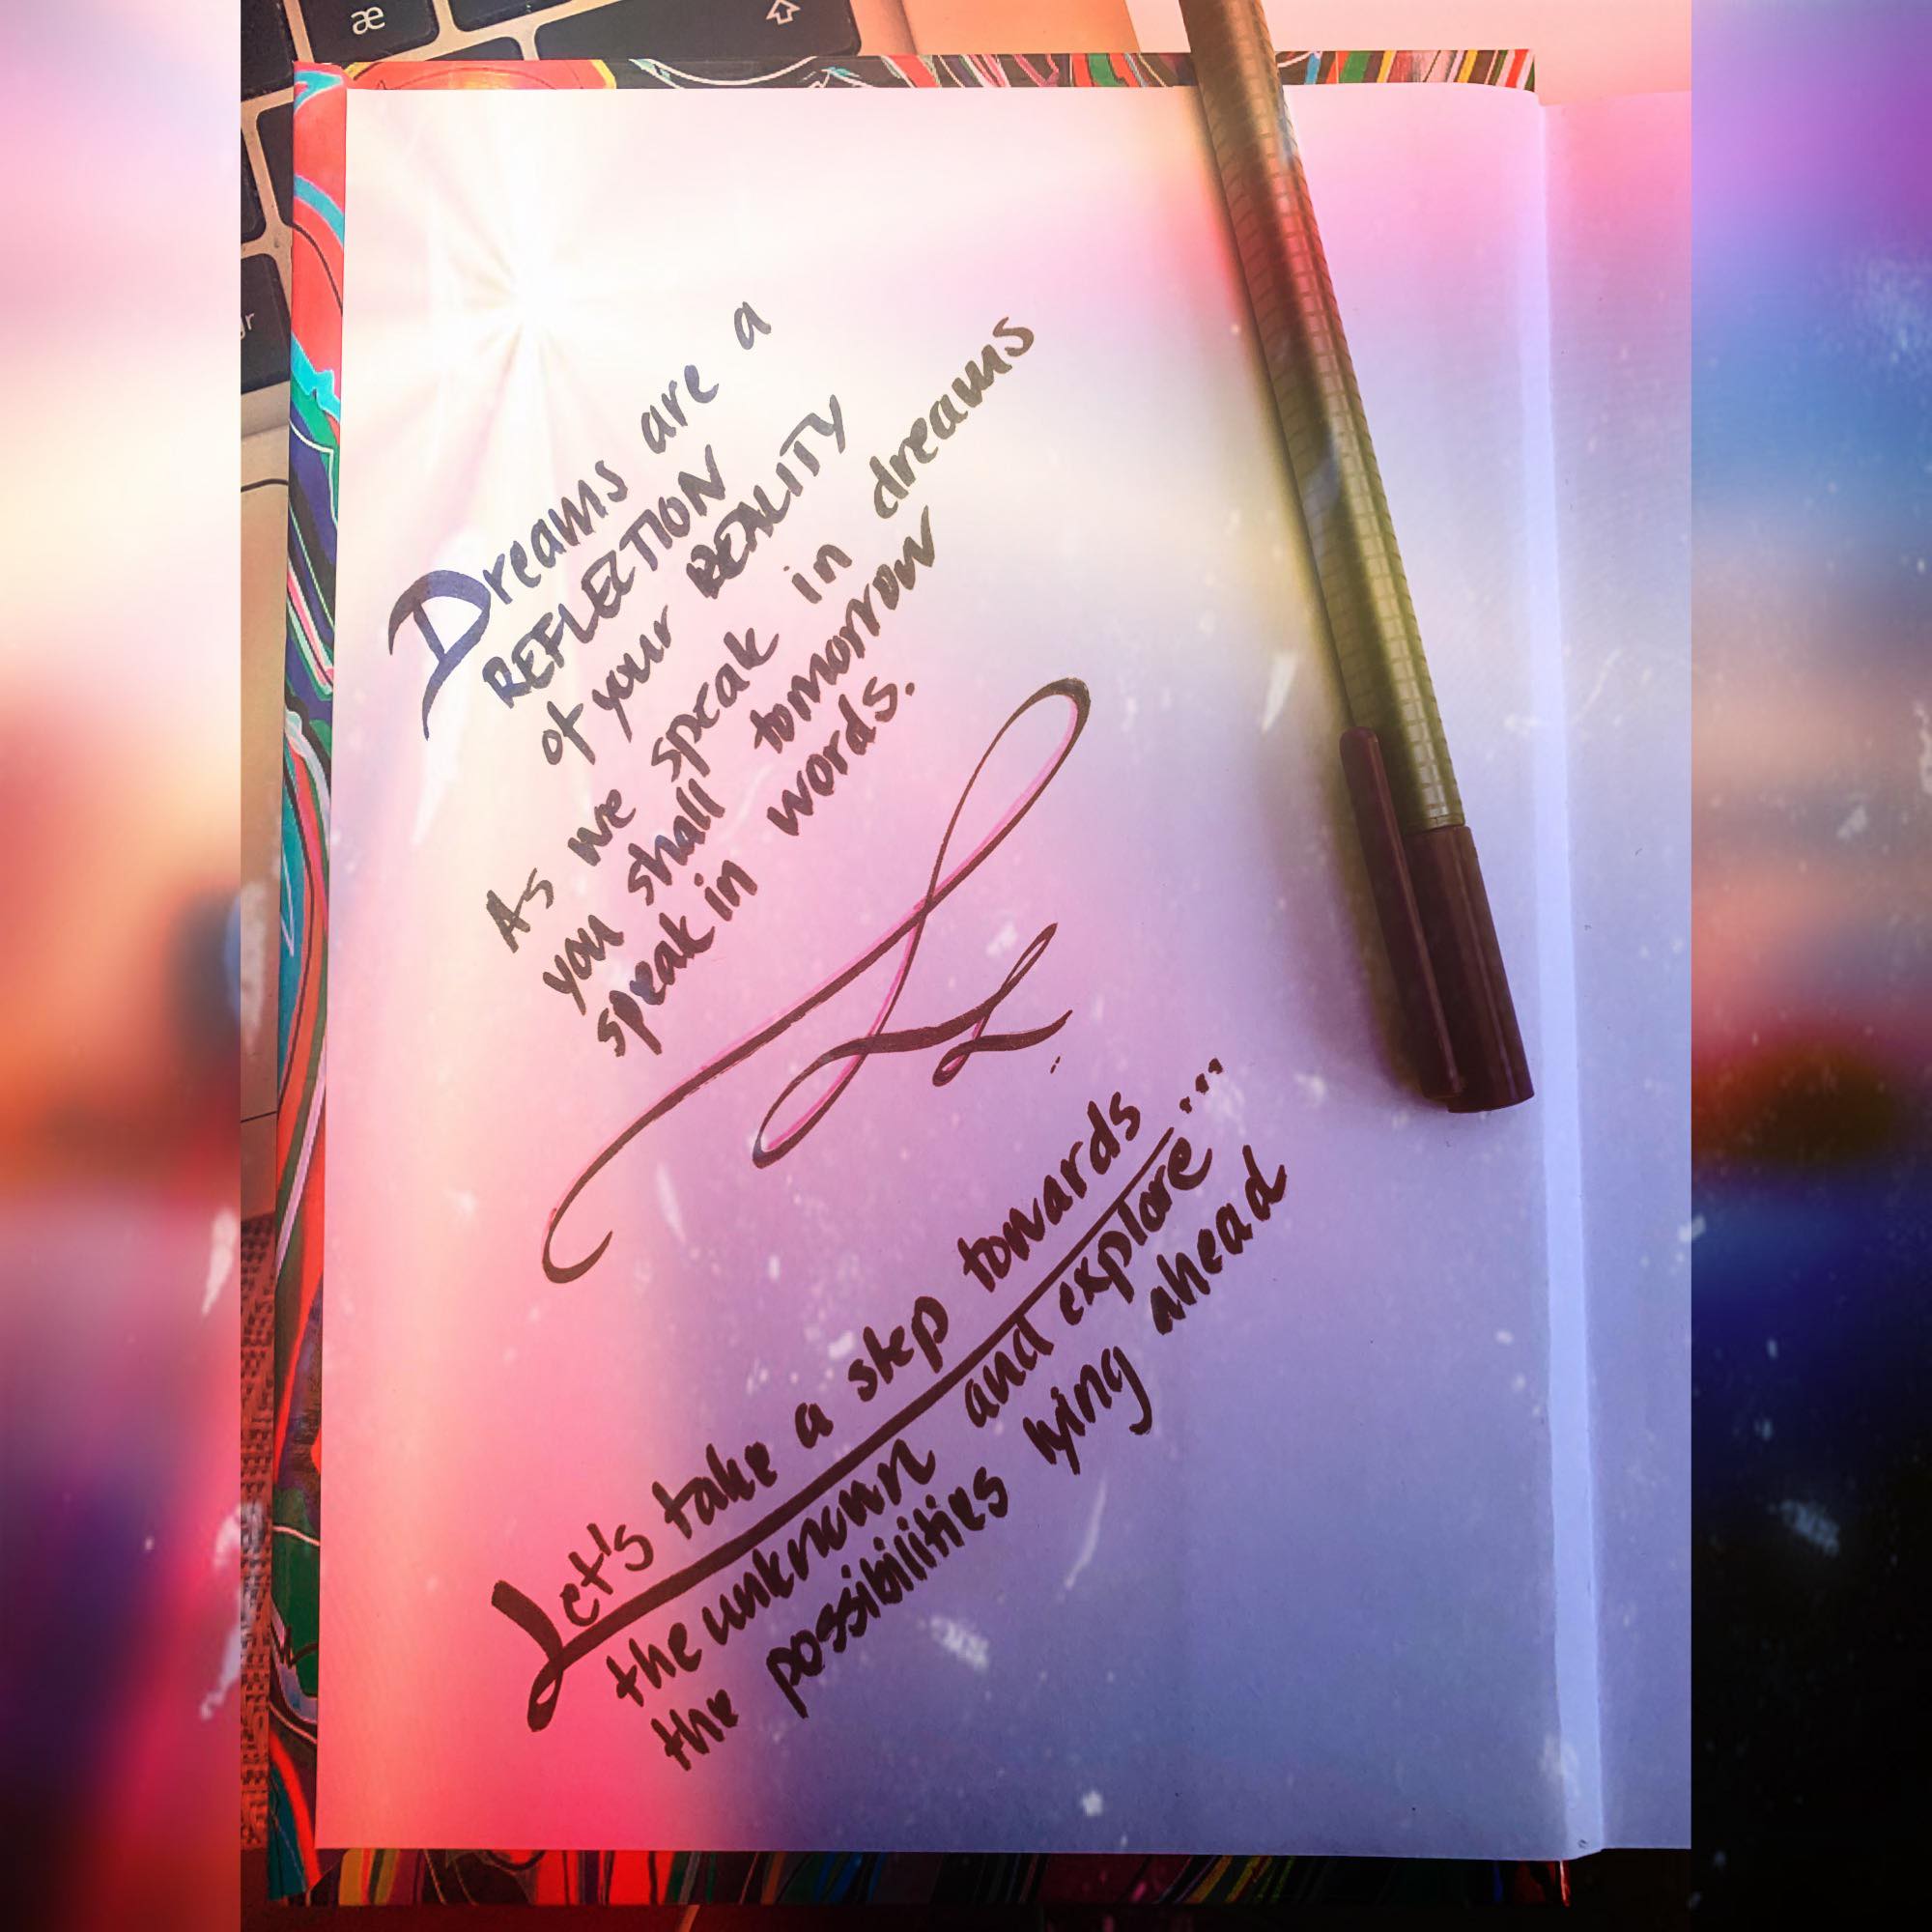 æ
Dreams are a
REFLECTION
of your REALITY
As we speak in dreams
you shall tomorrow
speak in words.
Let's take a step towards
the unknown and explore...
the possibilities lying ahead